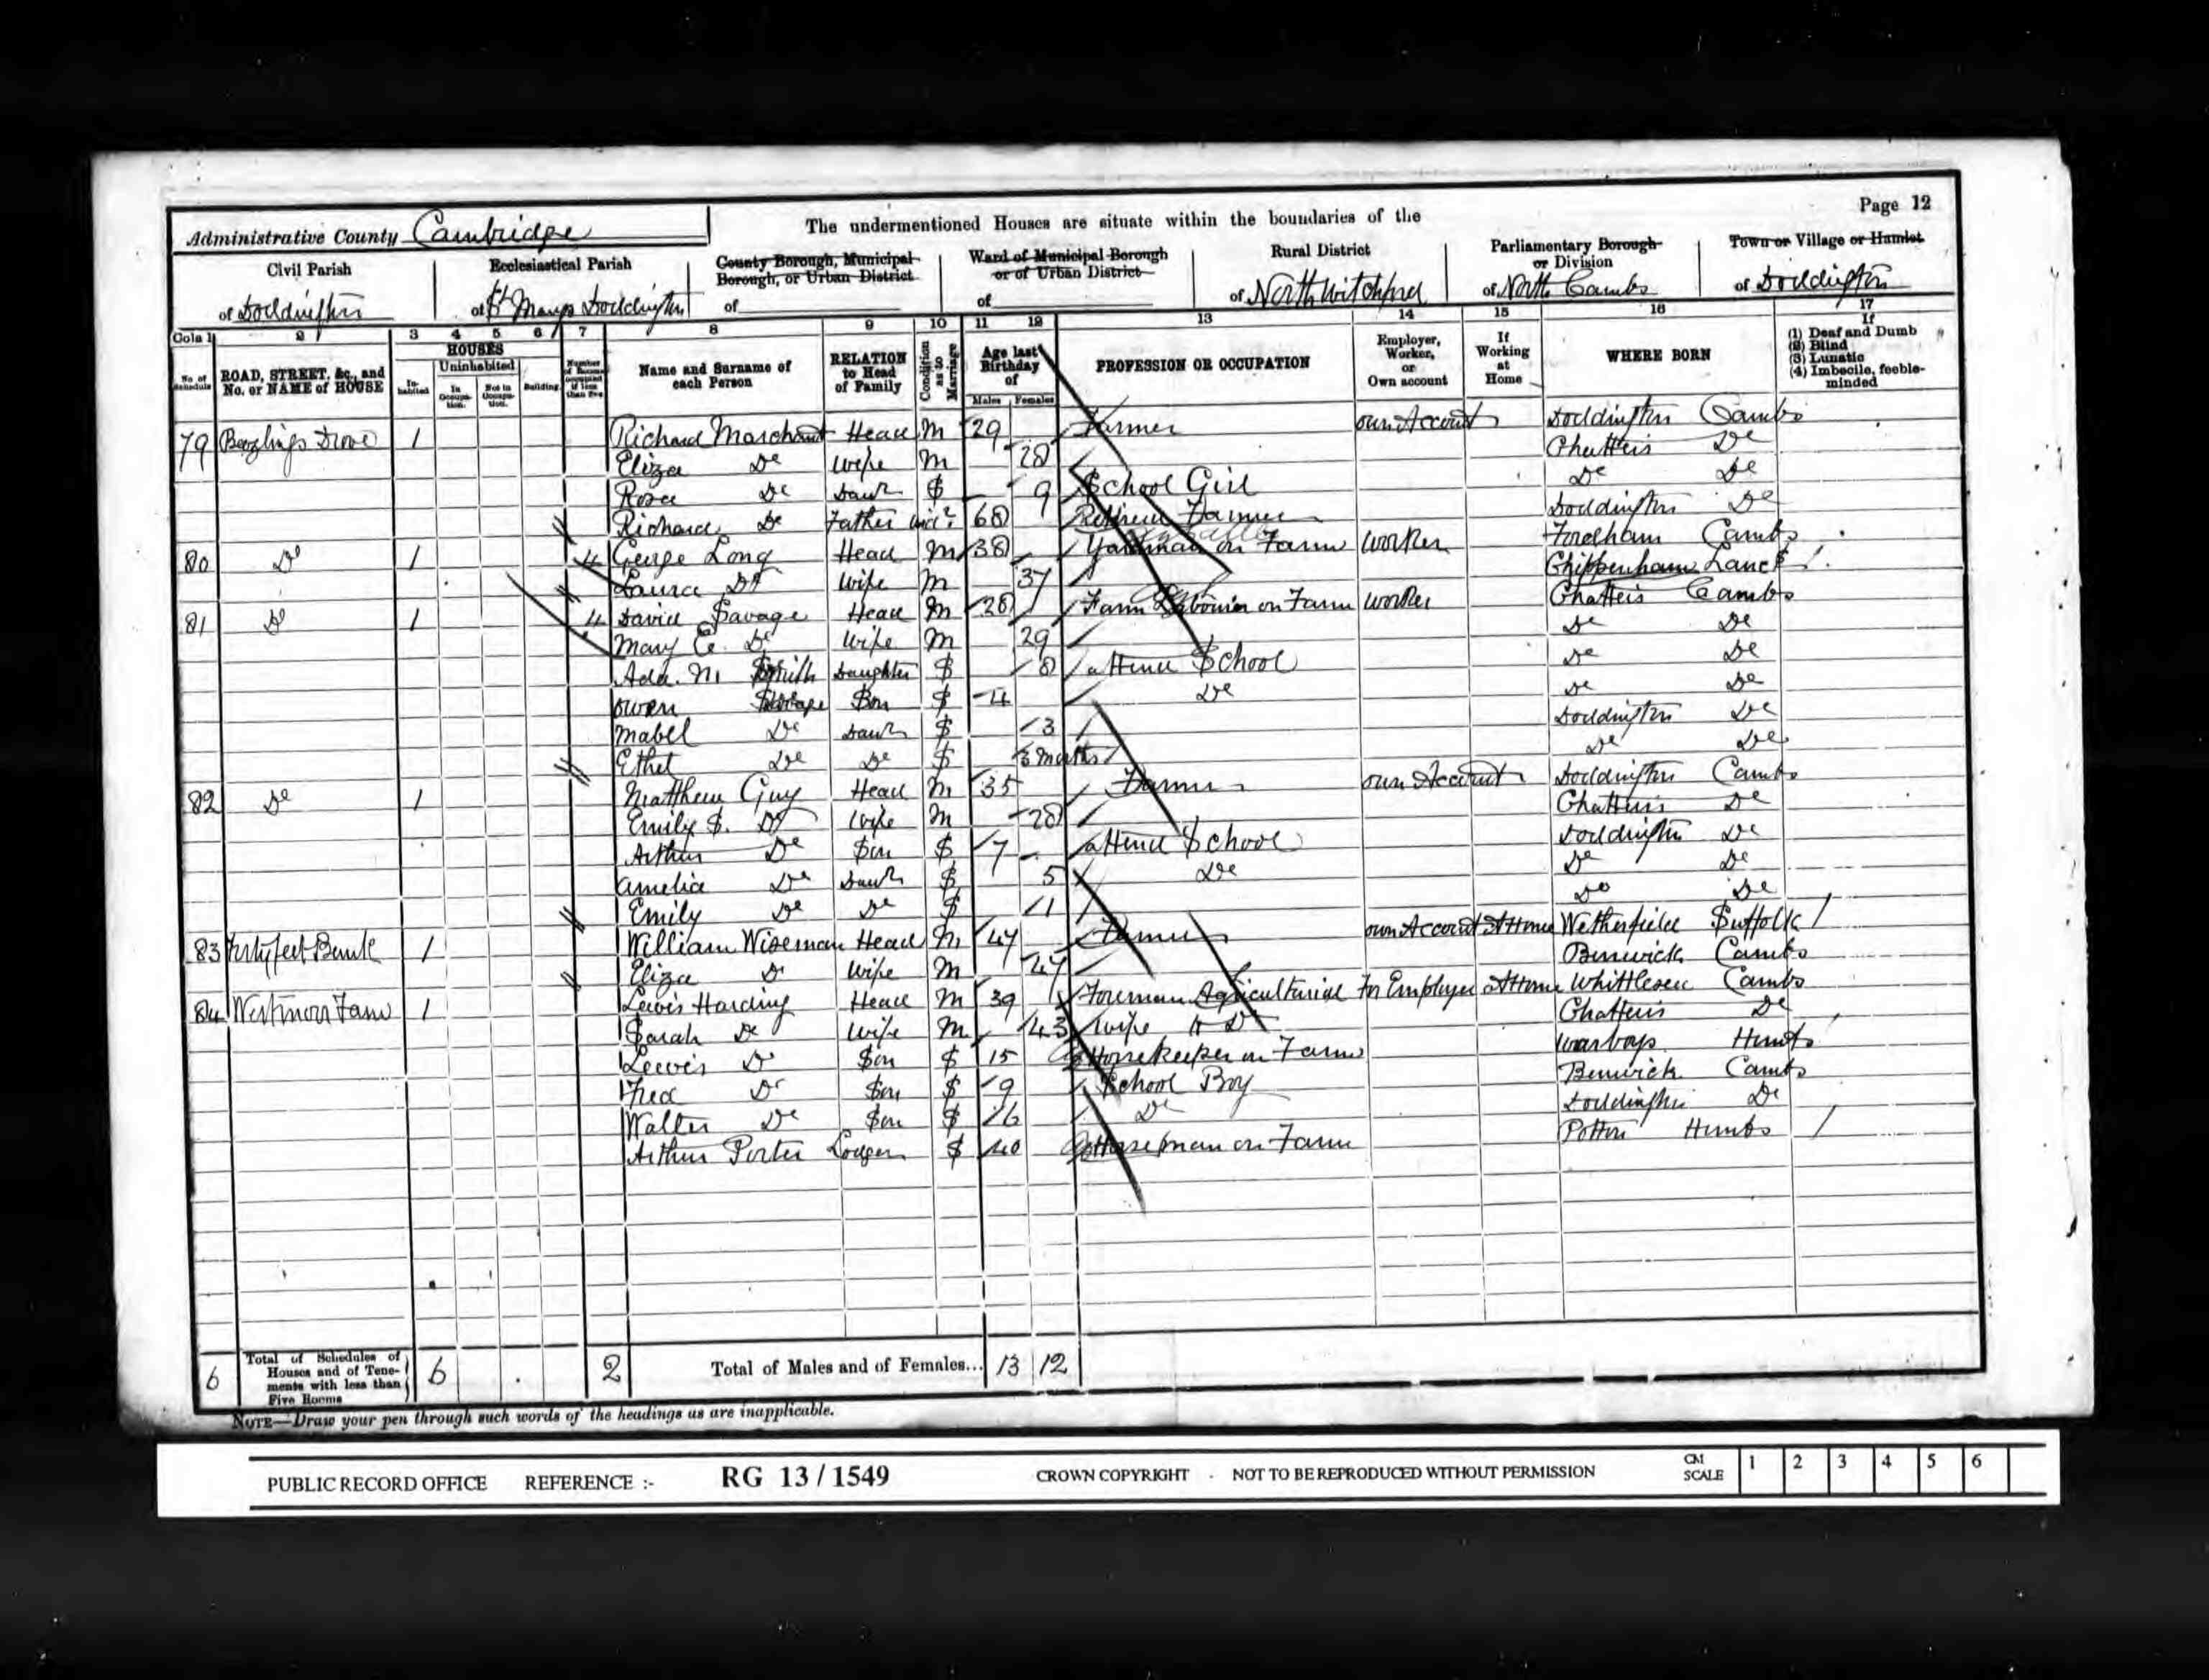 Page 12
Administrative County Cambridge
The undermentioned Houses are situate within the boundaries of the
Civil Parish
of Doddington
Ecclesiastical Parish
of St Marys Doddington
County Borough, Municipal Borough, or Urban District
of
Ward of Municipal Borough or of Urban District
of
Rural District
of North Witchford
Parliamentary Borough or Division
of North Cambs
Town or Village or Hamlet
of Doddington
Cols 1 2 3 4 5 6 7 8 9 10 11 12 13 14 15 16 17
No. of Schedule
ROAD, STREET, &c., and No. or NAME of HOUSE
HOUSES
Inhabited
Uninhabited
In Occupation.
Not in Occupation.
Building
Number of Rooms occupied if less than five
Name and Surname of each Person
RELATION to Head of Family
Condition as to Marriage
Age last Birthday of
Males Females
PROFESSION OR OCCUPATION
Employer, Worker, or Own account
If Working at Home
WHERE BORN
If (1) Deaf and Dumb (2) Blind (3) Lunatic (4) Imbecile, feeble-minded
79 Drove 1 Richard Marchant Head M 29 Farmer own Account Doddington Cambs
Eliza Do Wife M 28 Chatteris Do
Rosa Do Daur S 9 School Girl Do Do
Richard Do Father 68 Retired Farmer Doddington Do
80 Do 1 4 George Long Head M 38 Yardman on Farm Worker Fordham Cambs
Laura Do Wife M 37 Chippenham
81 Do 1 4 David Savage Head M 28 Farm Labourer on Farm Worker Chatteris Cambs
Mary E. Do Wife M 29 Do Do
Ada. M. Smith Daughter S 8 attend School Do Do
Owen Savage Son S 4 Do Do Do
Mabel Do Daur S 3 Doddington Do
Ethel Do Do S 3 Do Do
82 Do 1 Matthew Guy Head M 35 Farmer own Account Doddington Cambs
Emily S. Do Wife M 28 Chatteris Do
Arthur Do Son S 7 attend School Doddington Do
Amelia Do Daur S 5 Do Do Do
Emily Do Do S 1 Do Do
83 Fortyfeet Bank 1 William Wiseman Head M 47 Farmer own Account At Home Wetherfield Suffolk
Eliza Do Wife M 47 Benwick Cambs
84 Westmoor Farm 1 Lewis Harding Head M 39 Foreman Agricultural For Employer At Home Whittlesea Cambs
Sarah Do Wife M 43 Wife Do Chatteris Do
Lewis Do Son S 15 Horsekeeper on Farm Warboys Hunts
Fred Do Son S 9 School Boy Benwick Cambs
Walter Do Son S 6 Do Doddington Do
Arthur Porter Lodger S 40 Horseman on Farm Potton Hunts
6 Total of Schedules of Houses and of Tenements with less than Five Rooms 6 2 Total of Males and of Females... 13 12
NOTE—Draw your pen through such words of the headings as are inapplicable.
PUBLIC RECORD OFFICE REFERENCE :- RG 13 / 1549 CROWN COPYRIGHT · NOT TO BE REPRODUCED WITHOUT PERMISSION CM SCALE 1 2 3 4 5 6